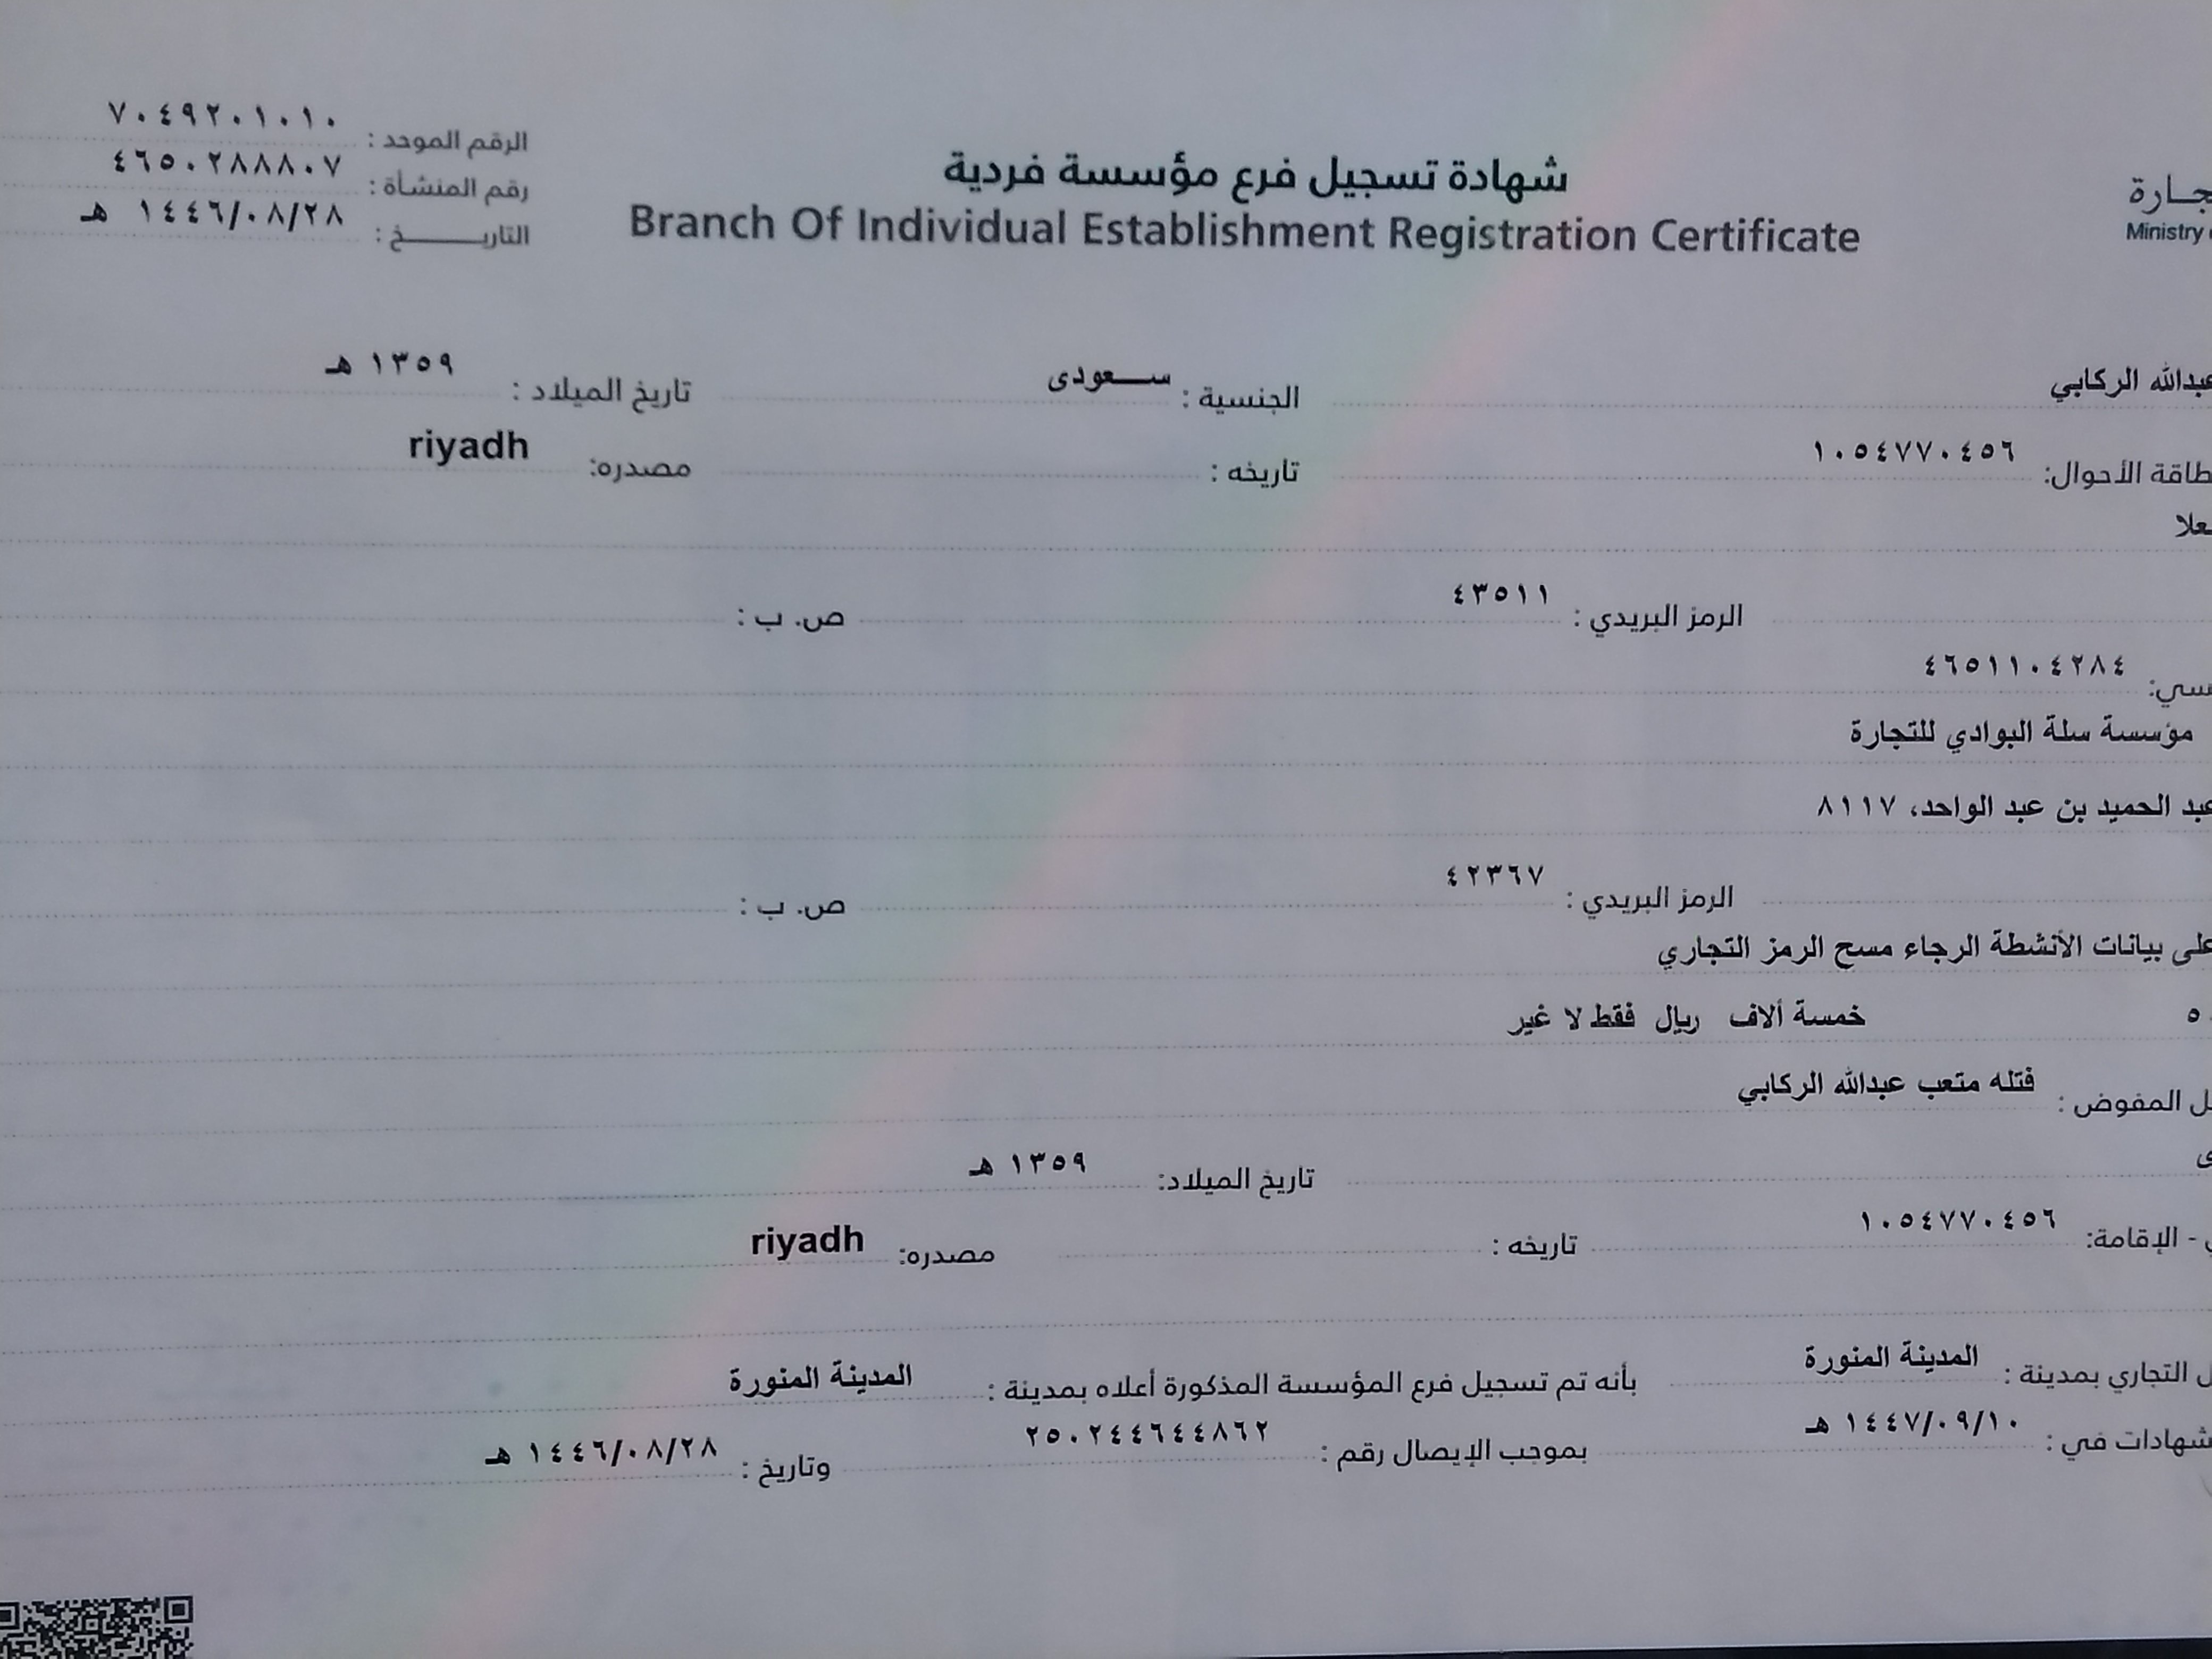 الرقم الموحد : ٧٠٤٩٢٠١٠١٠
رقم المنشأة : ٤٦٥٠٢٨٨٨٠٧
التاريـــــخ : ١٤٤٦/٠٨/٢٨ هـ
شهادة تسجيل فرع مؤسسة فردية
Branch Of Individual Establishment Registration Certificate
Ministry
عبدالله الركابي الجنسية : ســعودى تاريخ الميلاد : ١٣٥٩ هـ
الأحوال: ١٠٥٤٧٧٠٤٥٦ تاريخه : مصدره: riyadh
الرمز البريدي : ٤٣٥١١ ص. ب :
٤٦٥١١٠٤٢٨٤
مؤسسة سلة البوادي للتجارة
عبد الحميد بن عبد الواحد، ٨١١٧
الرمز البريدي : ٤٢٣٦٧ ص. ب :
على بيانات الأنشطة الرجاء مسح الرمز التجاري
خمسة ألاف ريال فقط لا غير
المفوض : فتله متعب عبدالله الركابي
تاريخ الميلاد: ١٣٥٩ هـ
- الإقامة: ١٠٥٤٧٧٠٤٥٦ تاريخه : مصدره: riyadh
التجاري بمدينة : المدينة المنورة بأنه تم تسجيل فرع المؤسسة المذكورة أعلاه بمدينة : المدينة المنورة
في : ١٤٤٧/٠٩/١٠ هـ بموجب الإيصال رقم : ٢٥٠٢٤٤٦٤٤٨٦٢ وتاريخ : ١٤٤٦/٠٨/٢٨ هـ